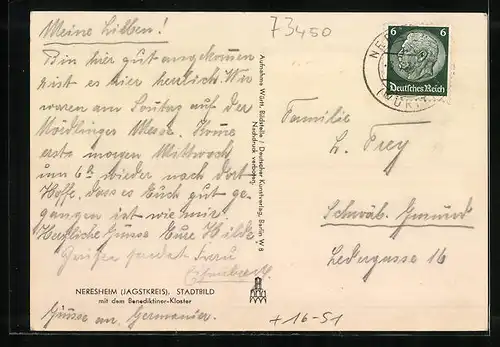 Meine Lieben!
Bin hier gut angekommen
u. ist es hier herrlich. Wir
waren am Sontag auf der
Mödlinger Messe. Komme
erst morgen Mittwoch
um 6h wieder nach dort.
Hoffe, dass es Euch gut ge-
gangen ist wie mir.
Herzliche Grüsse Eure Hilde
Grüsse sendet Frau
NERESHEIM (JAGSTKREIS), STADTBILD
mit dem Benediktiner-Kloster
Grüsse an Germanier.
Aufnahme Württ. Bildstelle / Deutscher Kunstverlag, Berlin W 8
Nachdruck verboten.
73450
6 6
Deutsches Reich
NERE
(WÜRTT
Familie
L. Frey
Schwäb. Gmünd
Ledergasse 16
+16-51